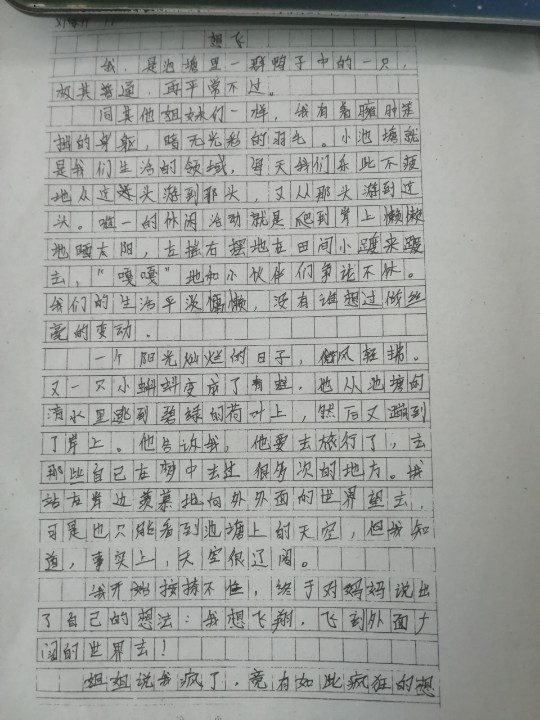 想飞
我，是池塘里一群鸭子中的一只，
极其普通，再平常不过。
同其他姐妹们一样，我有着臃肿笨
拙的身躯，暗无光彩的羽毛。小池塘就
是我们生活的领域，每天我们乐此不疲
地从这头游到那头，又从那头游到这
头。唯一的休闲活动就是爬到岸上懒懒
地晒太阳，左摇右摆地在田间小踱来踱
去，“嘎嘎”地和小伙伴们争论不休。
我们的生活平淡慵懒，没有谁想过做丝
毫的变动．
一个阳光灿烂的日子，微风轻拂。
又一只小蝌蚪变成了青蛙。他从池塘的
清水里跳到碧绿的荷叶上，然后又蹦到
了岸上。他告诉我，他要去旅行了，去
那些自己在梦中去过很多次的地方。我
站在岸边羡慕地向外外面的世界望去，
可是也只能看到池塘上的天空，但我知
道，事实上，天空很辽阔。
我开始按捺不住，终于对妈妈说出
了自己的想法：我想飞翔，飞到外面广
阔的世界去！
姐姐说我疯了，竟有如此疯狂的想